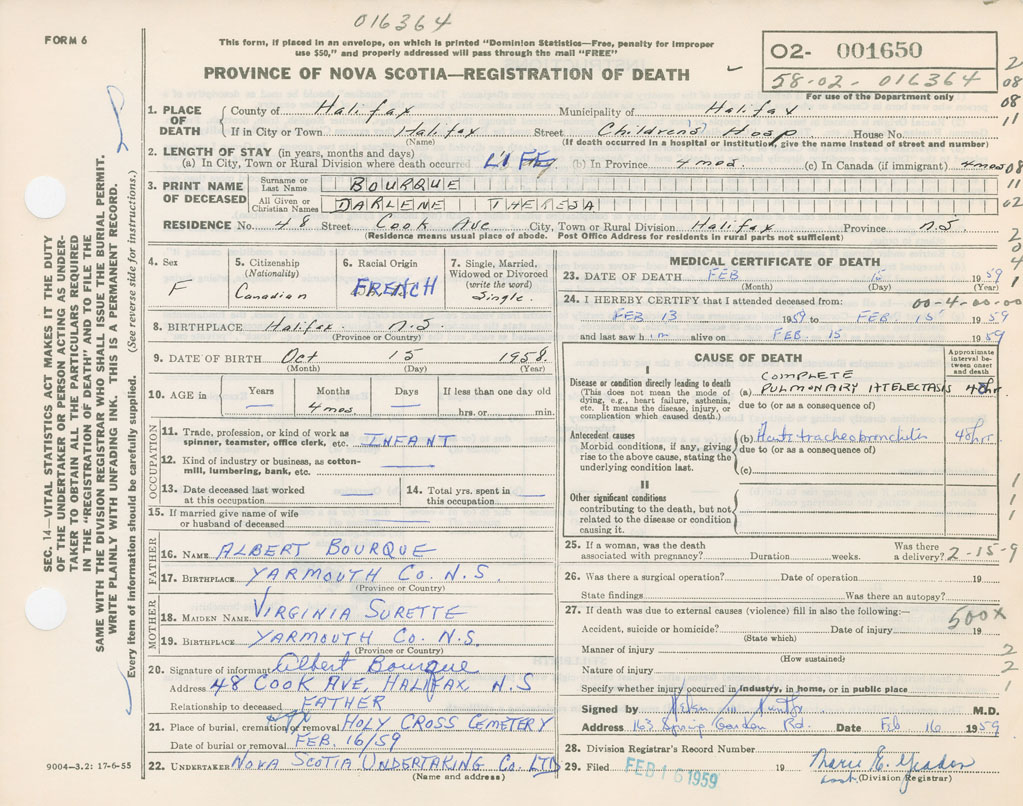 016364
FORM 6
This form, if placed in an envelope, on which is printed "Dominion Statistics—Free, penalty for improper
use $50," and properly addressed will pass through the mail "FREE"
PROVINCE OF NOVA SCOTIA—REGISTRATION OF DEATH
02- 001650
58-02- 016364
For use of the Department only
1. PLACE OF DEATH
County of Halifax Municipality of Halifax
If in City or Town Halifax Street Children's Hosp House No.
(Name) (If death occurred in a hospital or institution, give the name instead of street and number)
2. LENGTH OF STAY (in years, months and days)
(a) In City, Town or Rural Division where death occurred LIFE (b) In Province 4 mos. (c) In Canada (if immigrant) 4 mos
3. PRINT NAME OF DECEASED
Surname or Last Name BOURQUE
All Given or Christian Names DARLENE THERESA
RESIDENCE No. 48 Street Cook Ave City, Town or Rural Division Halifax Province N.S.
(Residence means usual place of abode. Post Office Address for residents in rural parts not sufficient)
4. Sex
F
5. Citizenship
(Nationality)
Canadian
6. Racial Origin
FRENCH
7. Single, Married,
Widowed or Divorced
(write the word)
Single
8. BIRTHPLACE Halifax N.S
(Province or Country)
9. DATE OF BIRTH Oct 15 1958
(Month) (Day) (Year)
10. AGE in
Years Months Days If less than one day old
— 4 mos — hrs. or min.
OCCUPATION
11. Trade, profession, or kind of work as
spinner, teamster, office clerk, etc. INFANT
12. Kind of industry or business, as cotton-
mill, lumbering, bank, etc. —
13. Date deceased last worked
at this occupation —
14. Total yrs. spent in
this occupation —
15. If married give name of wife
or husband of deceased —
FATHER
16. NAME ALBERT BOURQUE
17. BIRTHPLACE YARMOUTH Co. N.S.
(Province or Country)
MOTHER
18. MAIDEN NAME VIRGINIA SURETTE
19. BIRTHPLACE YARMOUTH Co. N.S.
(Province or Country)
20. Signature of informant Albert Bourque
Address 48 COOK AVE, HALIFAX, N.S
Relationship to deceased FATHER
21. Place of burial, cremation or removal HOLY CROSS CEMETERY
Date of burial or removal FEB. 16/59
22. UNDERTAKER NOVA SCOTIA UNDERTAKING Co. LTD
(Name and address)
MEDICAL CERTIFICATE OF DEATH
23. DATE OF DEATH FEB 15 1959
(Month) (Day) (Year)
24. I HEREBY CERTIFY that I attended deceased from: 00-4-00-00
FEB 13 1959 to FEB 15 1959
and last saw h im alive on FEB 15 1959
CAUSE OF DEATH
Approximate
interval be-
tween onset
and death
I
Disease or condition directly leading to death
(This does not mean the mode of
dying, e.g., heart failure, asthenia,
etc. It means the disease, injury, or
complication which caused death.)
COMPLETE
(a) PULMONARY ATELECTASIS 48hr
due to (or as a consequence of)
Antecedent causes
Morbid conditions, if any, giving
rise to the above cause, stating the
underlying condition last.
(b) Acute tracheobronchitis 48hrs
due to (or as a consequence of)
(c)
II
Other significant conditions
contributing to the death, but not
related to the disease or condition
causing it.
25. If a woman, was the death
associated with pregnancy? Duration weeks. Was there
a delivery? 2-15-9
26. Was there a surgical operation? Date of operation 19
State findings Was there an autopsy?
27. If death was due to external causes (violence) fill in also the following:—
500X
Accident, suicide or homicide? Date of injury 19
(State which)
Manner of injury
(How sustained)
Nature of injury
Specify whether injury occurred in industry, in home, or in public place
Signed by M.D.
Address 163 Spring Garden Rd. Date Feb 16 1959
28. Division Registrar's Record Number
29. Filed FEB 16 1959 19 Marie E.
(Division Registrar)
SEC. 14—VITAL STATISTICS ACT MAKES IT THE DUTY
OF THE UNDERTAKER OR PERSON ACTING AS UNDER-
TAKER TO OBTAIN ALL THE PARTICULARS REQUIRED
IN THE "REGISTRATION OF DEATH" AND TO FILE THE
SAME WITH THE DIVISION REGISTRAR WHO SHALL ISSUE THE BURIAL PERMIT.
WRITE PLAINLY WITH UNFADING INK. THIS IS A PERMANENT RECORD.
Every item of information should be carefully supplied. (See reverse side for instructions.)
9004-3.2: 17-6-55
2
08
08
11
08
11
02
2
0
4
1
1
1
1
2
2
1